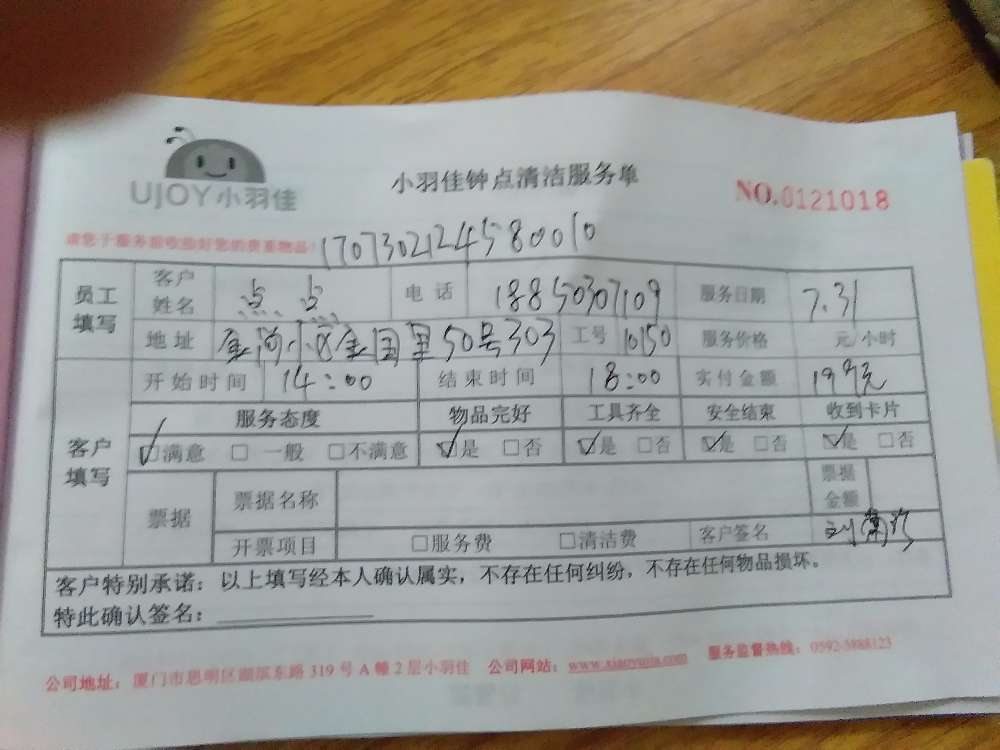 UJOY小羽佳
小羽佳钟点清洁服务单
NO.0121018
请您于服务前收拾好您的贵重物品!
1707302124580010
员工填写 客户姓名 点点 电话 18850307109 服务日期 7.31
地址 金尚小区金国里50号303 工号 10150 服务价格 元/小时
客户填写 开始时间 14:00 结束时间 18:00 实付金额 199元
服务态度 物品完好 工具齐全 安全结束 收到卡片
☑满意 □一般 □不满意 ☑是 □否 ☑是 □否 ☑是 □否 ☑是 □否
票据 票据名称 票据金额
开票项目 □服务费 □清洁费 客户签名 刘
客户特别承诺：以上填写经本人确认属实，不存在任何纠纷，不存在任何物品损坏。
特此确认签名：
公司地址：厦门市思明区湖滨东路319号A幢2层小羽佳 公司网站：www.xiaoyujia.com 服务监督热线：0592-5888123